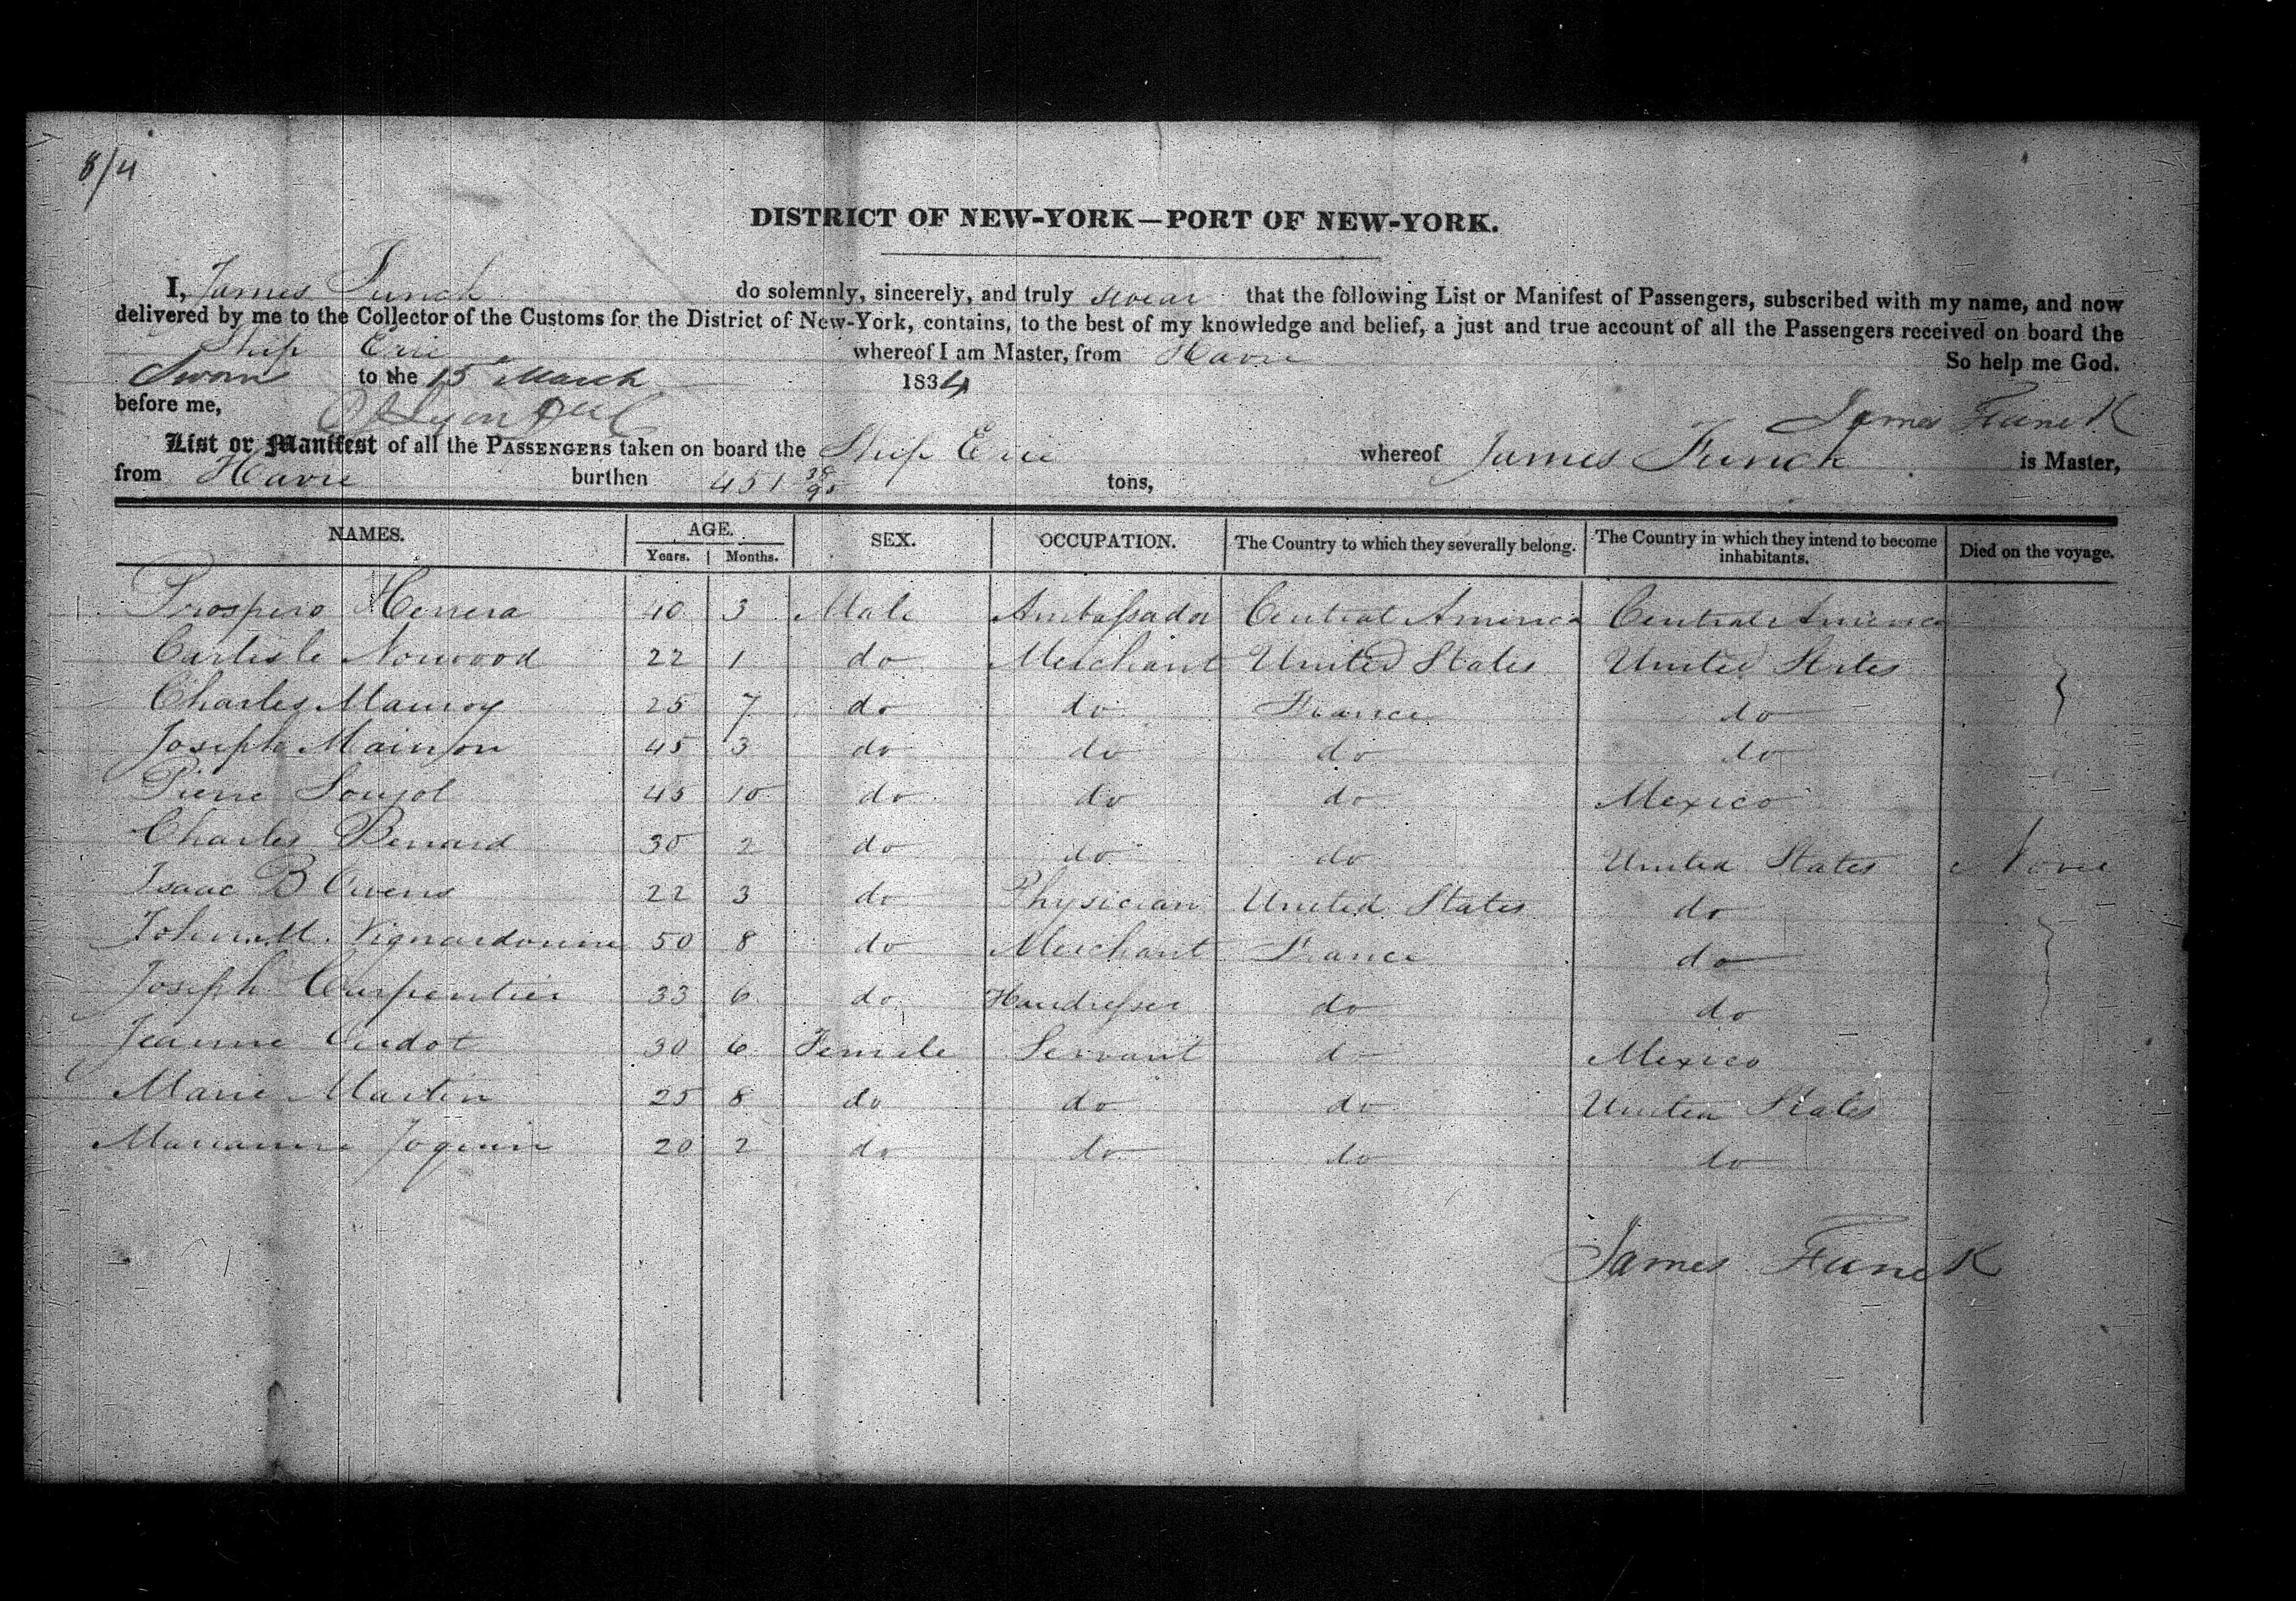 8/4
DISTRICT OF NEW-YORK—PORT OF NEW-YORK.
I, James Funck do solemnly, sincerely, and truly swear that the following List or Manifest of Passengers, subscribed with my name, and now
delivered by me to the Collector of the Customs for the District of New-York, contains, to the best of my knowledge and belief, a just and true account of all the Passengers received on board the
Ship Erie whereof I am Master, from Havre So help me God.
Sworn to the 15 March 1834
before me, James Funck
List or Manifest of all the PASSENGERS taken on board the Ship Erie whereof James Funck is Master,
from Havre burthen 451 tons,
NAMES. AGE. Years. Months. SEX. OCCUPATION. The Country to which they severally belong. The Country in which they intend to become inhabitants. Died on the voyage.
Prospero Herrera 40 3 Male Ambassador Central America Central America
Carlisle Norwood 22 1 do Merchant United States United States
Charles Mauroy 25 7 do do France do
Joseph 45 3 do do do do
Pierre 45 10 do do do Mexico
Charles Benard 30 2 do do do United States None
Isaac B Owens 22 3 do Physician United States do
John M. 50 8 do Merchant France do
Joseph Carpentier 33 6 do Hairdresser do do
Jeanne 30 6 Female Servant do Mexico
Marie Martin 25 8 do do do United States
Marianne 20 2 do do do do
James Funck